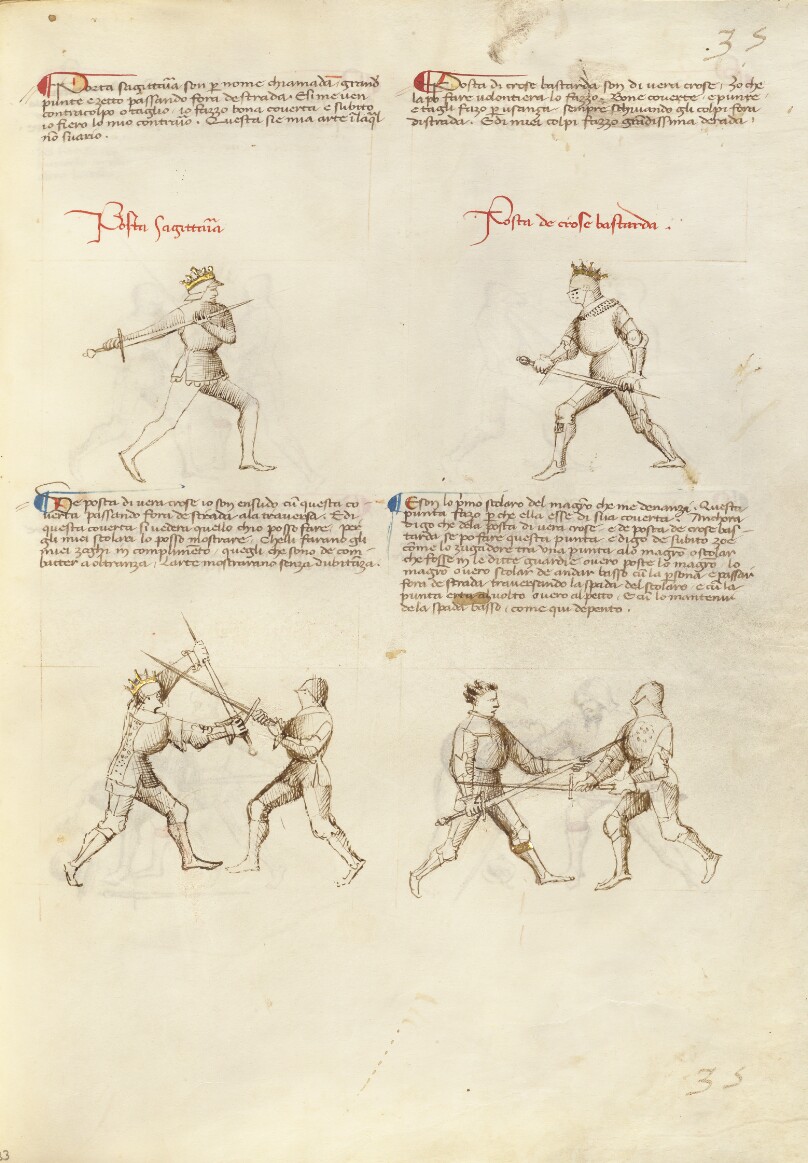 35
Posta Sagittaria son per nome chiamada, grande
punte e zetto passando fora de strada. E si me ven
contra colpo o taglio io fazzo bona coverta e subito
io fiero lo mio contrario. Questa sie mia arte i la qual
no svario.
Posta Sagittaria
Posta di crose bastarda son di vera crose, zo che
la po fare volontiera lo fazzo. Bone coverte e punte
e tagli fazo per usanza, sempre schivando gli colpi fora
di strada. E di miei colpi fazzo grandissima derada,
Posta de crose bastarda.
De posta di vera crose io son ensudo cum questa co
verta passando fora de strada ala traversa. E di
questa coverta si vedera quello chio posso fare per
gli miei scolari lo posso mostrare. Chelli farano gli
miei zoghi in complimento, quegli che sono de com
batter a oltranza, l'arte mostrarano senza dubitanza.
E son lo primo scolaro del magistro che me denanzi. Questa
punta fazo per che ella esse di sua coverta. Anchora
digo che dela posta di vera crose, e de posta de crose bas
tarda se po fare questa punta, e digo de subito zoe
come lo zugadore tra una punta alo magistro o scolar
che fosse in le ditte guardie overo poste lo magistro lo
magro overo scolar de andar basso cum la persona e passar
fora de strada traversando la spada del scolaro, e cum la
punta erta al volto overo al petto, e cum lo mantenir
de la spada basso, come qui depento.
35
33